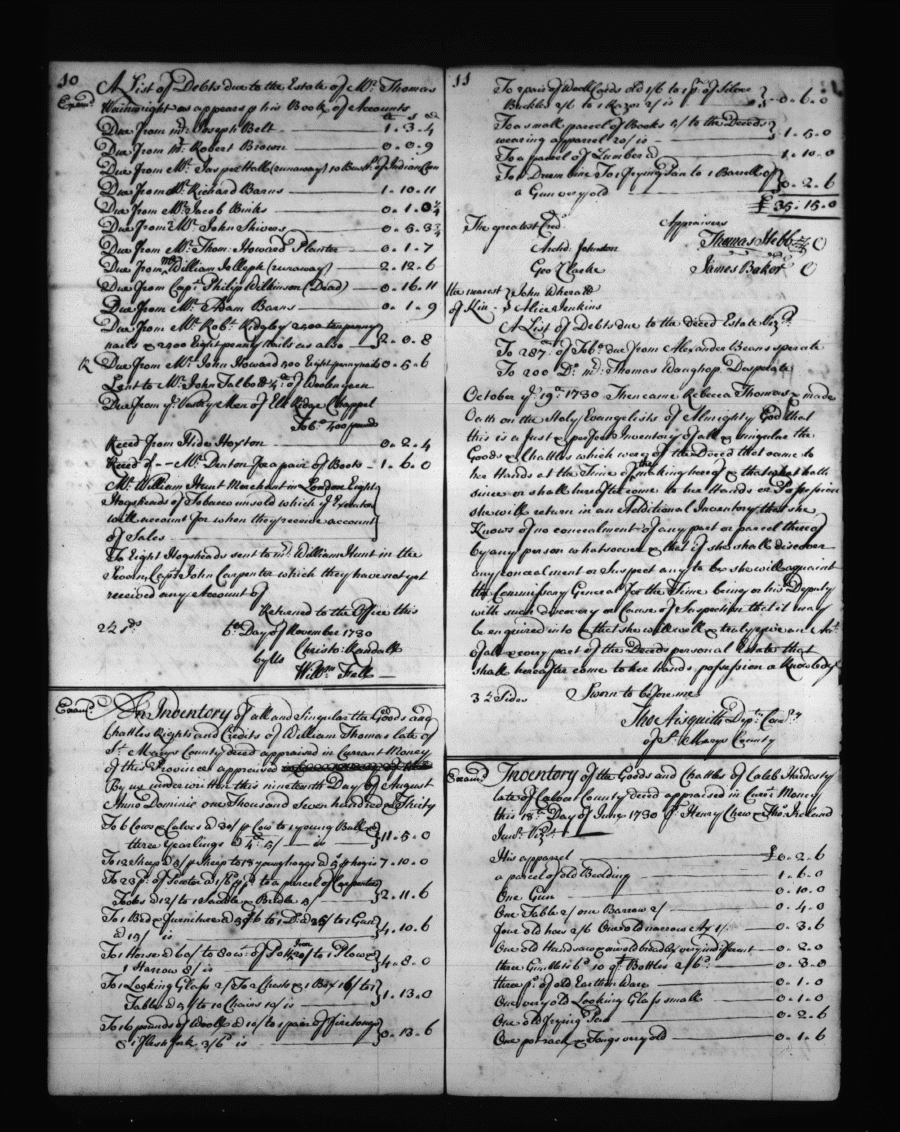 10
A List of Debts due to the Estate of Mr. Thomas
Exam.d Wainwright as appears p his Book of Accounts
Due from mr. Joseph Belt 1.3.4
Due from Mr. Robert Brown 0.0.9
Due from Mr. Jasper Hall (runaway) 10 Bush.s of Indian Corn
Due from Mr. Richard Barns 1.10.11
Due from Mr. Jacob Binks 0.1.0 1/4
Due from Mr. John Shivers 0.5.3 3/4
Due from Mr. Thom: Howard Planter 0.1.7
Due from mr. William Jelleph (runaway) 2.12.6
Due from Cap.t Philip Wilkinson (Dead) 0.16.11
Due from Mr. Adam Barns 0.1.9
Due from Mr. Rob.t Ridgley 2400 tenpenny
nails & 2400 Eight penny nails as also 2.0.8
Due from Mr. John Howard 500 Eight penny nails 0.5.6
Lent to Mr. John Talbott of Woolen yarn
Due from ye Vestry Men of Elk Ridge Chappel
Tob.o 400 pounds
Reced from Hide Hoyston 0.2.4
Reced of Mr. Denton for a pair of Boots 1.6.0
Mr. William Hunt Merchant in London Eight
Hogsheads of Tobacco unsold which ye Executors
will account for when they receive account
of Sales
To Eight Hogsheads sent to mr. William Hunt in the
Cap.t John Carpenter which they have not yet
received any Account of
Returned to the Office this
6th Day of November 1730
by Us Christo: Randall
Will.m Fell
Exam.d An Inventory of all and Singular the Goods and
Chattles Rights and Credits of William Thomas late of
St. Marys County deced appraised in Currant Money
of this Province appraised
By us underwritten this nineteenth Day of August
Anno Domini one Thousand Seven hundred & Thirty
To 6 Cows & Calves @ 30/ p Cow to 1 young Bull &
three Yearlings @ 5/ is 11.5.0
To 12 Sheep @ 5/ p Sheep to 18 young hoggs @ 5/ p hog is 7.10.0
To 23 p.s of Pewter @ 1/ to a parcel of Carpenters
Tooles @ 12/ to 1 Saddle & Bridle 5/ 2.11.6
To 1 Bed & furniture @ to 1 D.o @ to 1 Gun
@ 15/ is 4.10.6
To 1 Horse @ 60/ to of to 1 Plow &
1 Harrow 8/ is 4.8.0
To 1 Looking Glass 2/ To a Chest & 1 Box 16/ to 1
Table @ 5/ to 10 Chairs 10/ is 1.13.0
To 16 pounds of Wooll @ 10/ to 1 pair of fire tongs
& 1 flesh fork 3/6 is 0.13.6
11
To 2 pair of Wooll Cards old 1/6 to 1 p.r of Silver
Buckles 2/6 to 1 Razor 2/ is 0.6.0
To a small parcel of Books 5/ to the Deceds
wearing apparrel 20/ is 1.5.0
To a parcel of Lumber @ 1.10.0
To 1 Drum line To 1 frying Pan to 1 Barrell of
a Gun very old 0.2.6
£ 35.15.0
The greatest Cred.rs Appraisers
Archd. Johnston Thomas Hebb
Geo: Clarke James Baker
the nearest John Wherett
of Kin Alice Jenkins
A List of Debts due to the deced Estate Viz.t
To 287 of Tob.o due from Alexander Beans sperate
To 200 D.o mr. Thomas Waughop Desperate
October ye 19th 1730 Then came Rebecca Thomas & made
Oath on the Holy Evangelists of Almighty God that
this is a Just & perfect Inventory of all & singular the
Goods & Chattles which were of the Deced that came to
her Hands at the Time of the making hereof & that what hath
since or shall hereafter come to her Hands or Possession
she will return in an Additional Inventory that she
Knows of no concealment of any part or parcel thereof
by any person whatsoever & that if she shall discover
any concealment or Suspect any to be she will acquaint
the Commissary General for the Time being or his Deputy
with such discovery or Cause of Suspection that it may
be enquired into & that she will well & truly give an Acc.t
of all & every part of the Deceds personal Estate that
shall hereafter come to her Hands possession or Knowledge
3 1/2 Sides Sworn to before me
Tho: Aisquith Dep.ty Com.ry
of St. Marys County
Exam.d Inventory of the Goods and Chattles of Caleb Hardesty
late of Calvert County deced appraised in Curr.t Money
this 18th Day of June 1730 p Henry Chew & Tho: Ireland
Jun.r Viz.t
His apparel £0.2.6
a parcel of old Bedding 1.6.0
One Gun 0.10.0
One Table 2/ one Barrow 2/ 0.4.0
four old hoes 2/6 One old narrow Ax 1/ 0.3.6
One old Handsaw & an old broad Ax very indifferent 0.2.0
three Gimblets 6d 10 qt Bottles 2/6 0.3.0
three p.s of old Earthen Ware 0.1.0
One very old Looking Glass small 0.1.0
One old frying Pan 0.2.6
One pot rack & Tongs very old 0.1.6